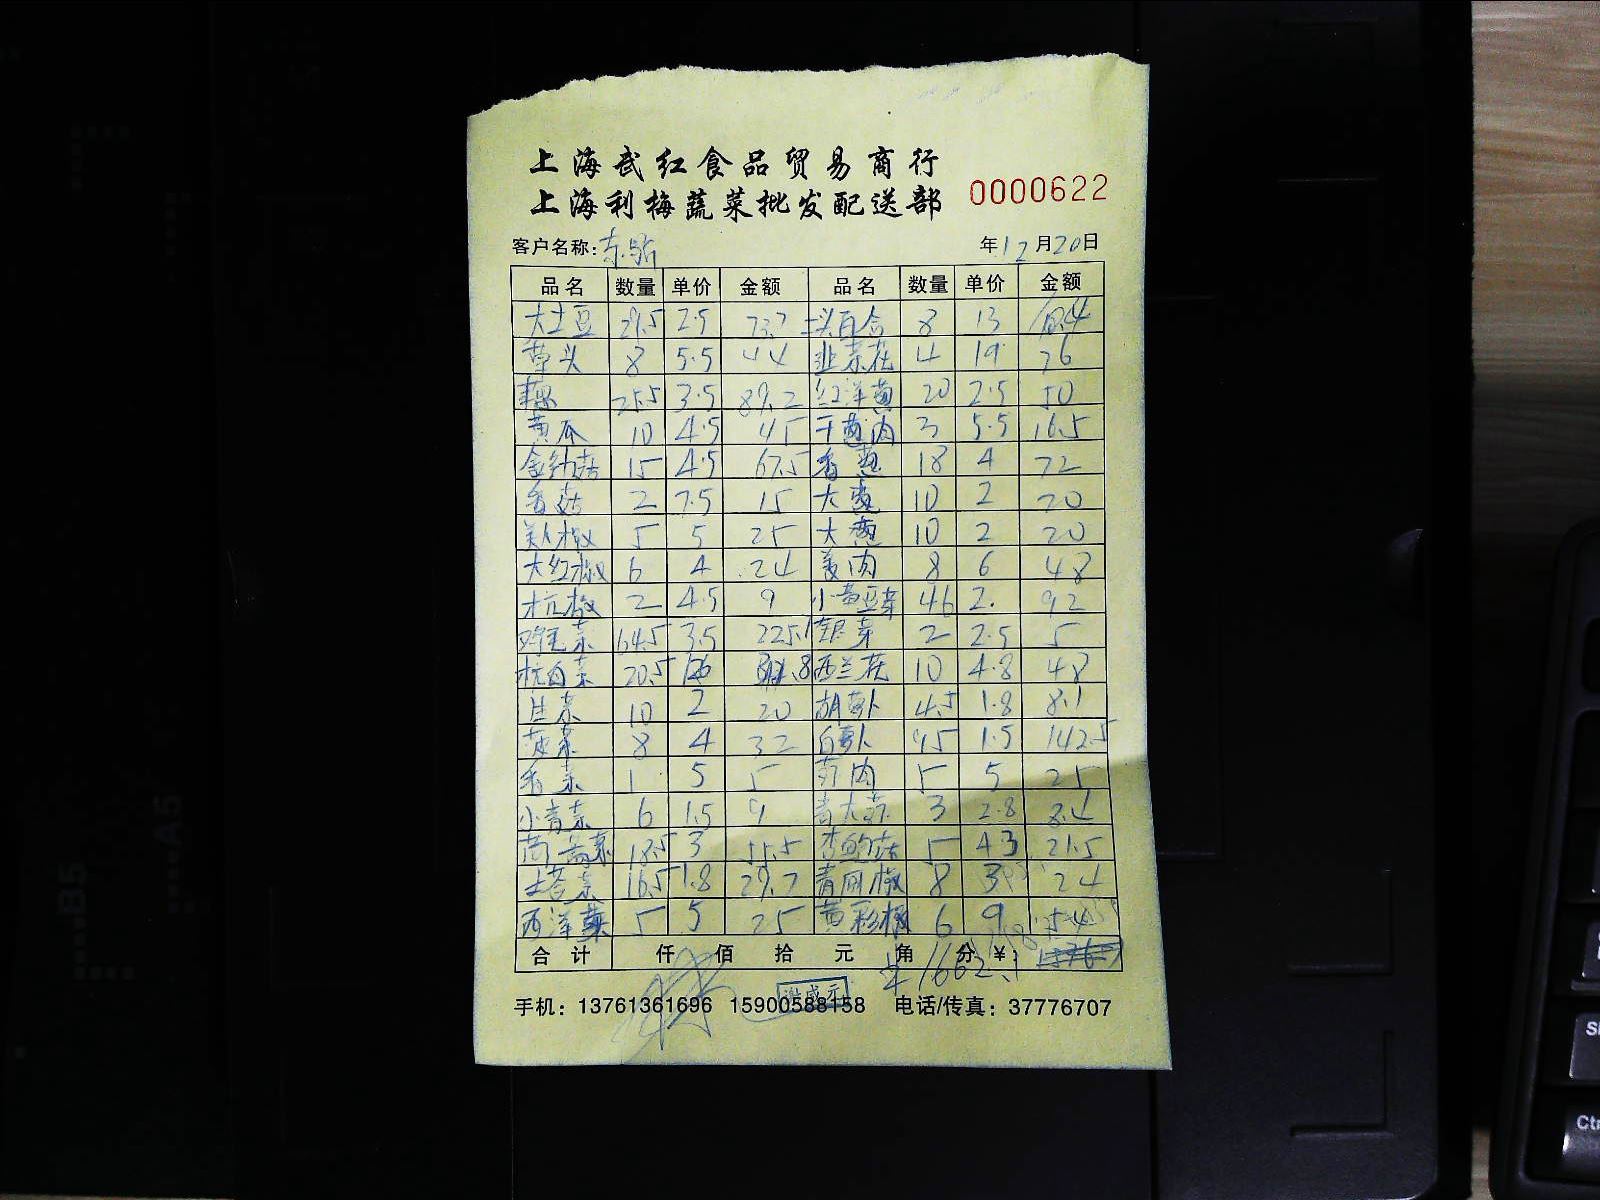 上海武红食品贸易商行
上海利梅蔬菜批发配送部 0000622
客户名称: 年12月20日
品名 数量 单价 金额 品名 数量 单价 金额
大土豆 29.5 2.5 73.7 头百合 8 13 104
草头 8 5.5 44 韭菜花 4 19 76
藕 25.5 3.5 89.2 红洋葱 20 2.5 50
黄瓜 10 4.5 45 干葱肉 3 5.5 16.5
金针菇 15 4.5 67.5 香葱 18 4 72
香菇 2 7.5 15 大葱 10 2 20
美人椒 5 5 25 大葱 10 2 20
大红椒 6 4 24 姜肉 8 6 48
杭椒 2 4.5 9 小黄豆芽 46 2. 92
鸡毛菜 64.5 3.5 225.7 银芽 2 2.5 5
杭白菜 20.5 西兰花 10 4.8 48
生菜 10 2 20 胡萝卜 4.5 1.8 8.1
菠菜 8 4 32 白萝卜 95 1.5 142.5
香菜 1 5 5 莴肉 5 5 25
小青菜 6 1.5 9 青大蒜 3 2.8 8.4
茼蒿菜 18.5 3 55.5 杏鲍菇 5 4.3 21.5
塔菜 16.5 1.8 29.7 青园椒 8 3 24
西洋菜 5 5 25 黄彩椒 6 9 54
合计 仟 佰 拾 元 角 分 ¥:
¥1662.1
手机: 13761361696 15900588158 电话/传真: 37776707